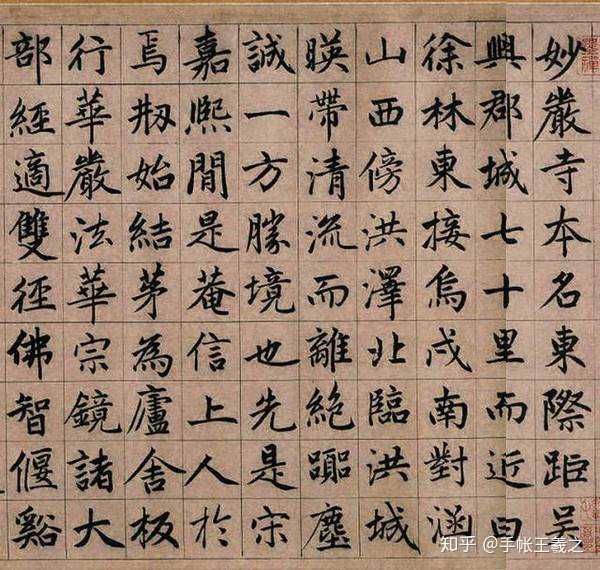 妙嚴寺本名東際距吳
興郡城七十里而近曰
徐林東接烏戍南對涵
山西傍洪澤北臨洪城
暎帶清流而離絕塵
誠一方勝境也先是宋
嘉熈間是菴信上人於
焉刱始結茅為廬舍板
行華嚴法華宗鏡諸大
部經適雙徑佛智偃谿
知乎 @手帐王羲之